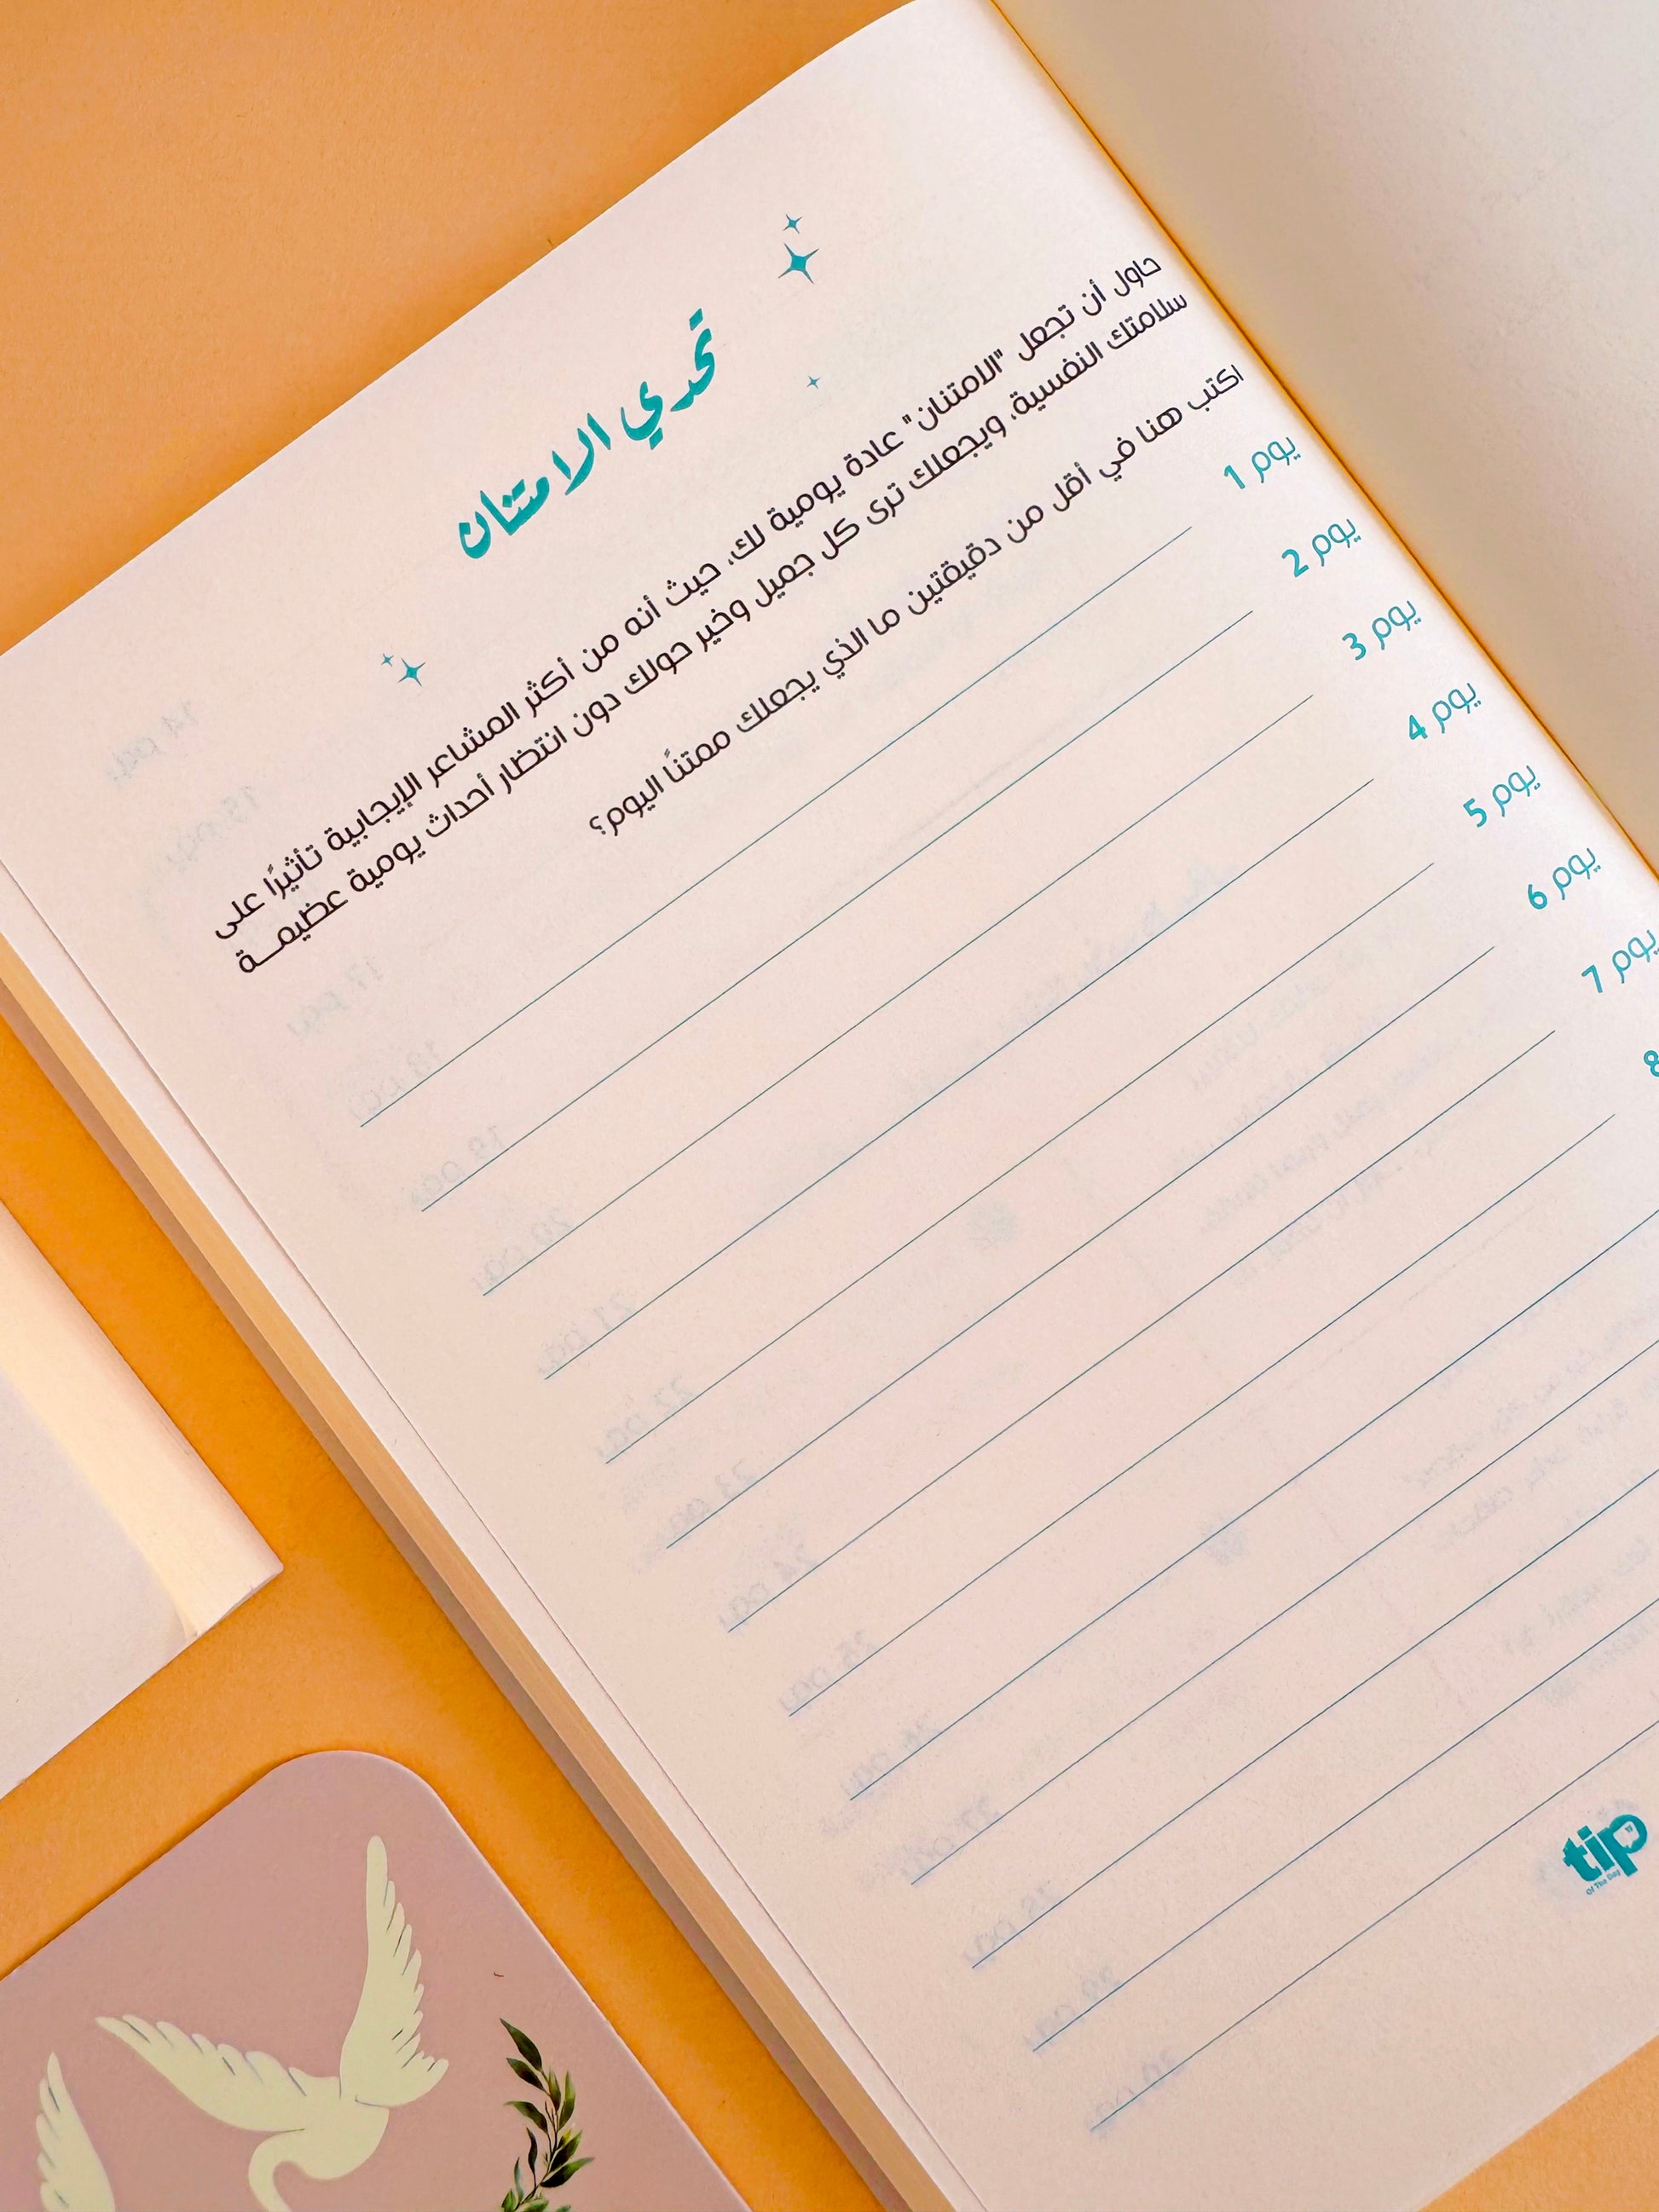 تحدي الامتنان
حاول أن تجعل "الامتنان" عادة يومية لك، حيث أنه من أكثر المشاعر الإيجابية تأثيرًا على
سلامتك النفسية، ويجعلك ترى كل جميل وخير حولك دون انتظار أحداث يومية عظيمـــة
اكتب هنا في أقل من دقيقتين ما الذي يجعلك ممتنًا اليوم؟
يوم 1
يوم 2
يوم 3
يوم 4
يوم 5
يوم 6
يوم 7
8
tip
Of The Day